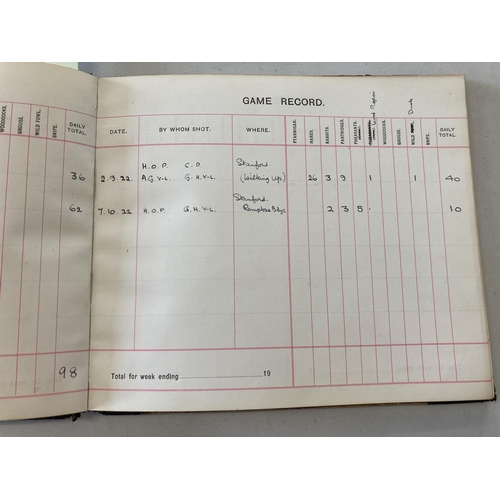 GAME RECORD.
WOODCOCKS. GROUSE. WILD FOWL. SNIPE. DAILY TOTAL.
DATE. BY WHOM SHOT. WHERE. PTARMIGAN. HARES. RABBITS. PARTRIDGES. PHEASANTS. WOODCOCKS. GROUSE. WILD Duck SNIPE. DAILY TOTAL.
H.O.P. C.P. Stanford
36 2.9.22 A.G.V-L. G.H.V-L. (Walking Up) 26 3 9 1 1 40
Stanford.
62 7.10.22 H.O.P. G.H.V-L. 2 3 5 10
98
Total for week ending 19